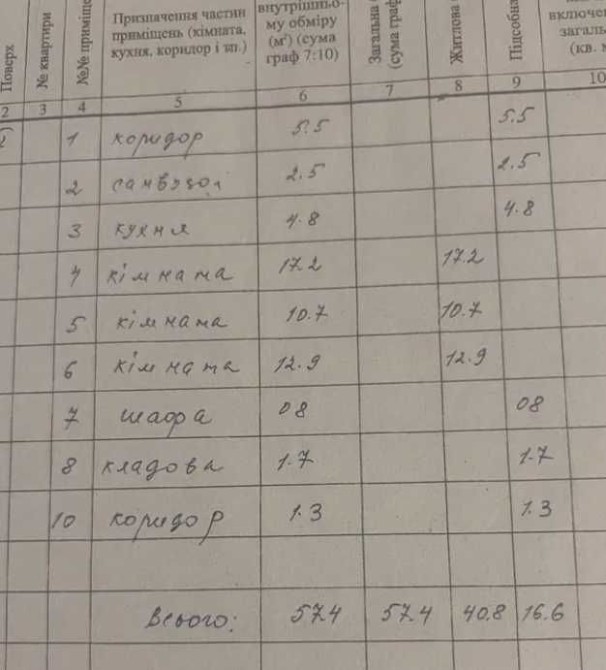 Поверх
№ квартири
№№ приміще
Призначення частин
приміщень (кімната,
кухня, коридор і ін.)
внутрішньо-
му обміру
(м²) (сума
граф 7:10)
Загальна
(сума граф
Житлова
Підсобна
включен
загаль
(кв. м
2 3 4 5 6 7 8 9 10
1 коридор 5.5 5.5
2 санвузол 2.5 2.5
3 кухня 4.8 4.8
4 кімната 17.2 17.2
5 кімната 10.7 10.7
6 кімната 12.9 12.9
7 шафа 08 08
8 кладова 1.7 1.7
10 коридор 1.3 1.3
Всього: 57.4 57.4 40.8 16.6